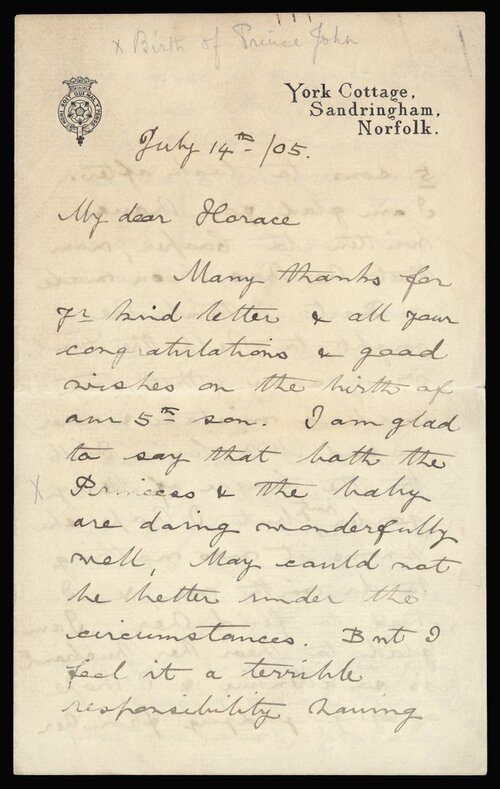 x Birth of Prince John
HONI SOIT QUI MAL Y PENSE
York Cottage,
Sandringham,
Norfolk.
July 14th/05.
My dear Horace
Many thanks for
yr kind letter & all your
congratulations & good
wishes on the birth of
our 5th son. I am glad
to say that both the
x Princess & the baby
are doing wonderfully
well, May could not
be better under the
circumstances. But I
feel it a terrible
responsibility having